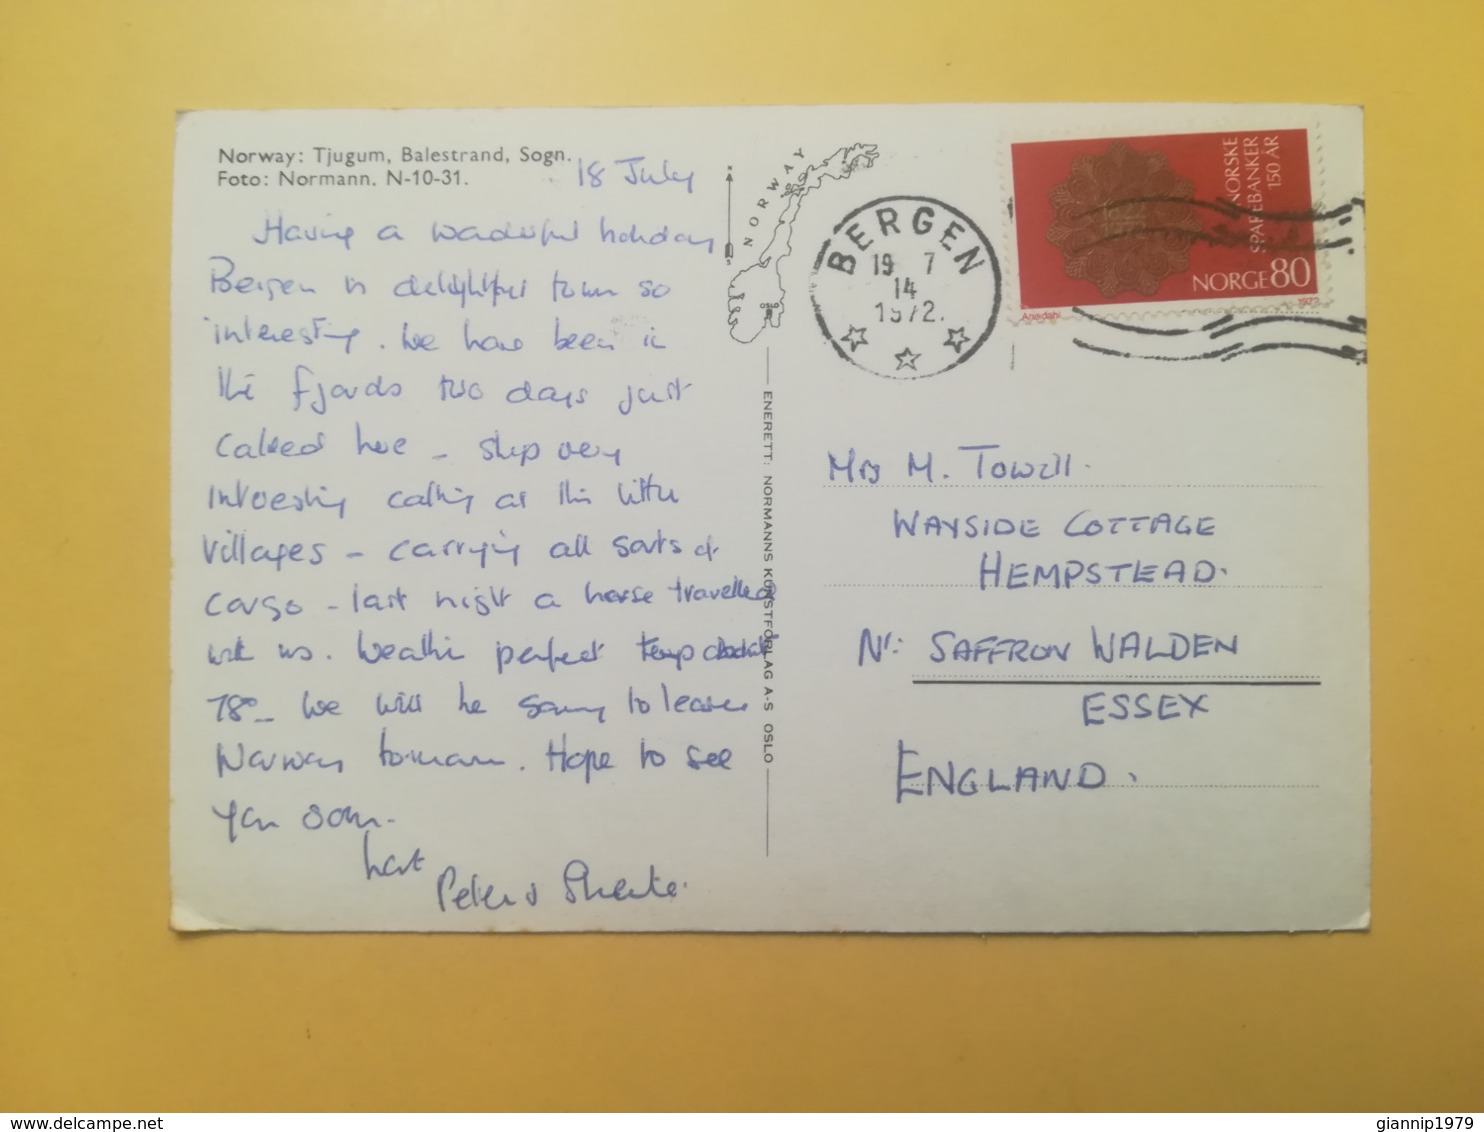 Norway: Tjugum, Balestrand, Sogn.
Foto: Normann. N-10-31.
18 July
Having a wonderful holiday
Bergen is delightful town so
interesting. We have been in
the fjords two days just
called here - ship very
interesting calling at the little
villages - carrying all sorts of
cargo - last night a horse travelled
with us. Weather perfect temp
78° - We will be sorry to leave
Norway tomorrow. Hope to see
you soon.
Peter &
NORWAY
ENERETT: NORMANNS KUNSTFORLAG A-S OSLO
BERGEN
19 7
14
1972.
NORSKE
SPAREBANKER
150 ÅR
NORGE 80
1972
Mrs M. Towell.
WAYSIDE COTTAGE
HEMPSTEAD.
Nr: SAFFRON WALDEN
ESSEX
ENGLAND.
giannip1979